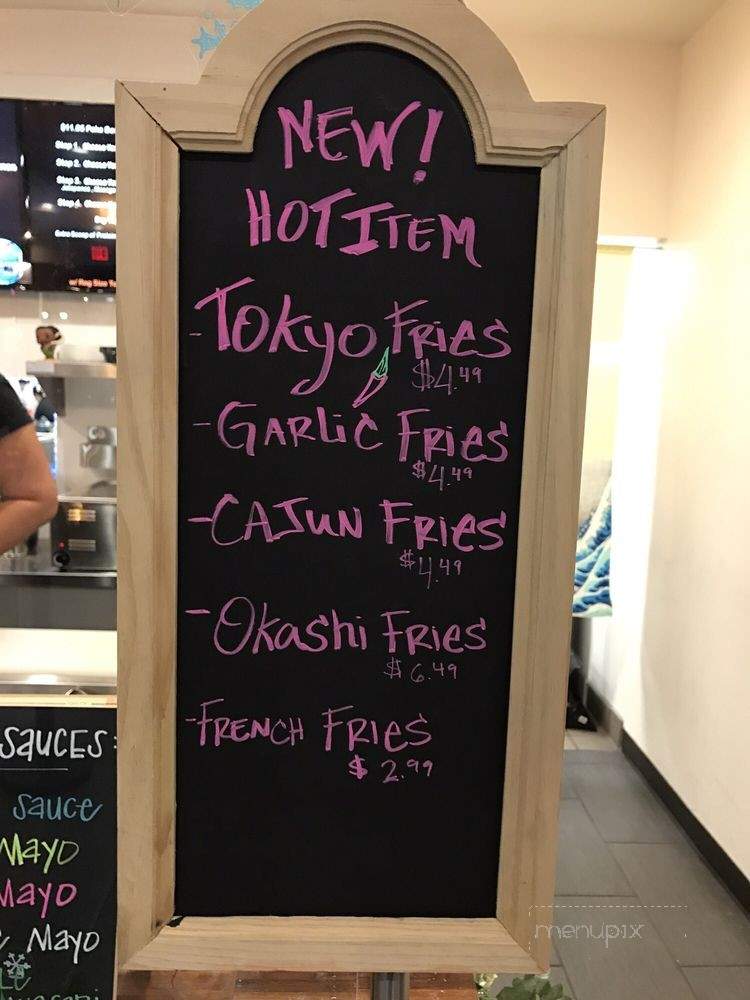 NEW!
HOT ITEM
- Tokyo Fries
$4.49
- Garlic Fries
$4.49
- Cajun Fries
$4.49
- Okashi Fries
$6.49
- French Fries
$2.99
$11.65 Poke
Step 1.
Step 2.
Step 3.
Step 4.
Extra Scoop of
w/ Reg Size
SAUCES:
Sauce
Mayo
Mayo
Mayo
menupix